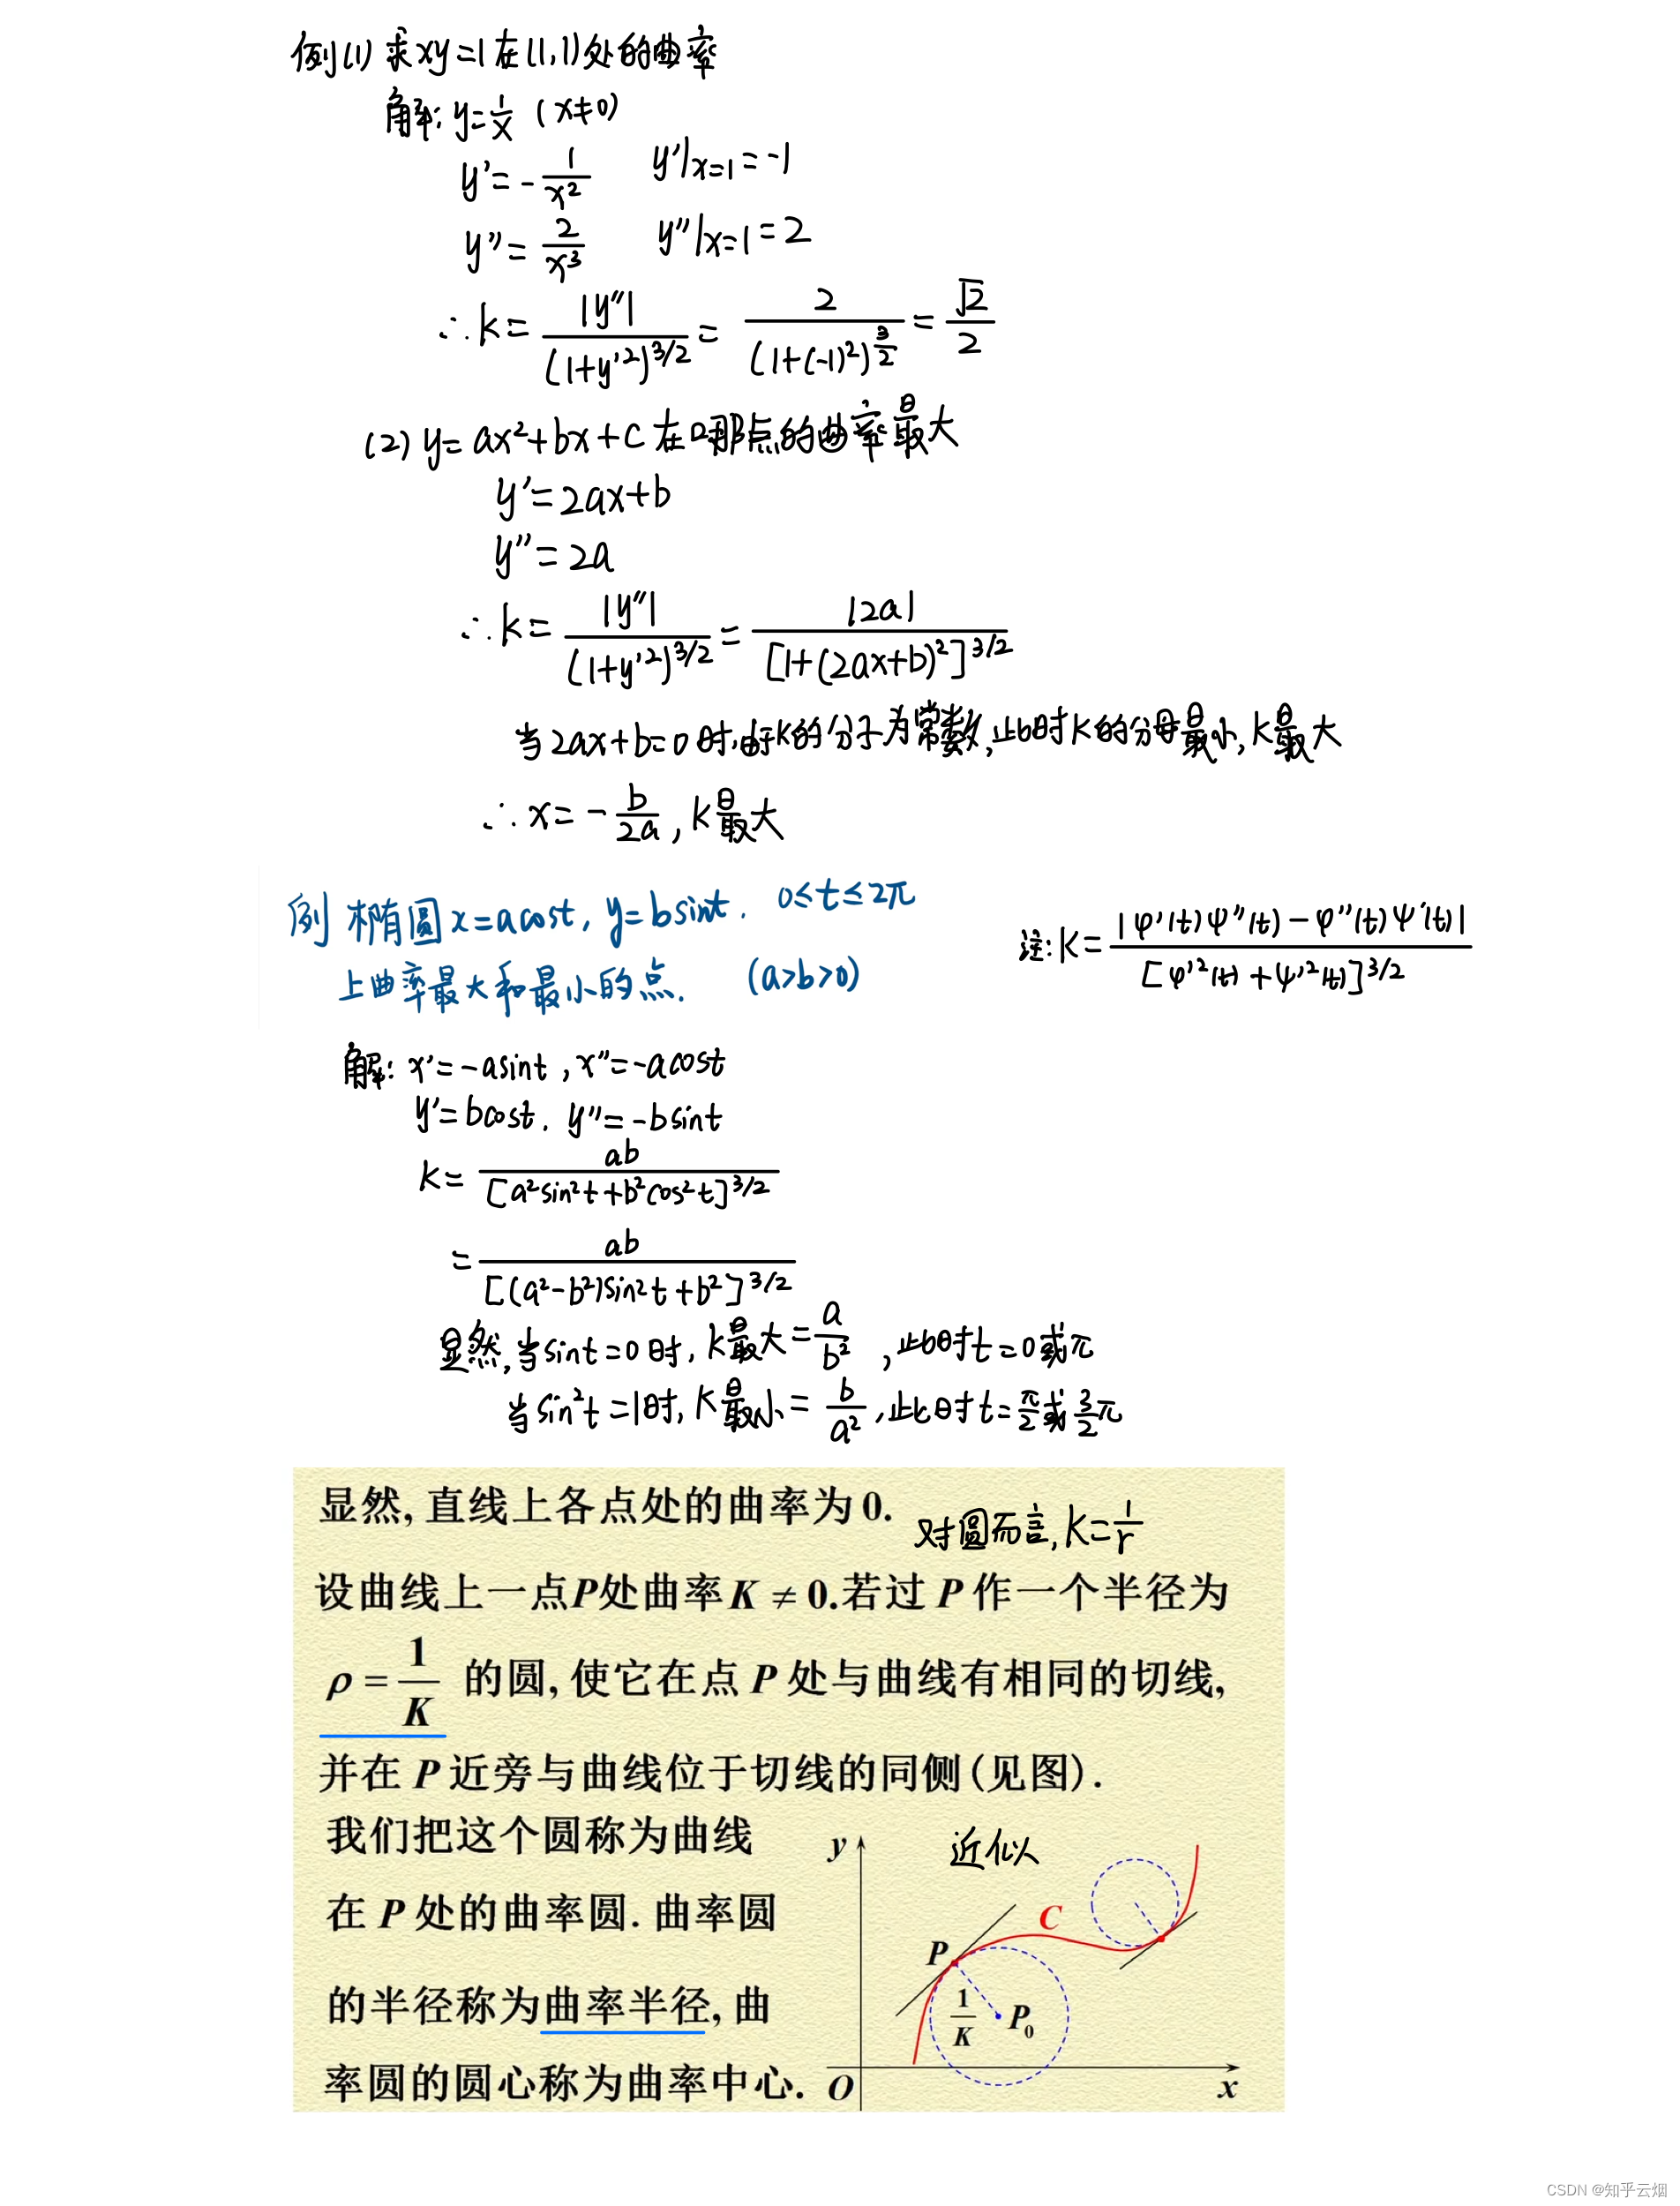 例(1) 求xy=1在(1,1)处的曲率
解: y=1/x (x≠0)
y'=-1/x² y'|x=1=-1
y''=2/x³ y''|x=1=2
∴k=|y''|/(1+y'²)^3/2=2/(1+(-1)²)^3/2=√2/2
(2) y=ax²+bx+c在哪点的曲率最大
y'=2ax+b
y''=2a
∴k=|y''|/(1+y'²)^3/2=|2a|/[1+(2ax+b)²]^3/2
当2ax+b=0时,由于k的分子为常数,此时k的分母最小,k最大
∴x=-b/2a,k最大
例 椭圆x=acost, y=bsint. 0≤t≤2π
上曲率最大和最小的点. (a>b>0)
注:k=|φ'(t)ψ''(t)-φ''(t)ψ'(t)|/[φ'²(t)+ψ'²(t)]^3/2
解: x'=-asint,x''=-acost
y'=bcost. y''=-bsint
k=ab/[a²sin²t+b²cos²t]^3/2
=ab/[(a²-b²)sin²t+b²]^3/2
显然,当sint=0时,k最大=a/b²,此时t=0或π
当sin²t=1时,k最小=b/a²,此时t=π/2或3/2π
显然, 直线上各点处的曲率为0. 对圆而言,k=1/r
设曲线上一点P处曲率K ≠ 0.若过 P 作一个半径为
ρ=1/K 的圆, 使它在点 P 处与曲线有相同的切线,
并在 P 近旁与曲线位于切线的同侧(见图).
我们把这个圆称为曲线
在 P 处的曲率圆. 曲率圆
的半径称为曲率半径, 曲
率圆的圆心称为曲率中心.
y
近似
C
P
1/K
P₀
O
x
CSDN @知乎云烟